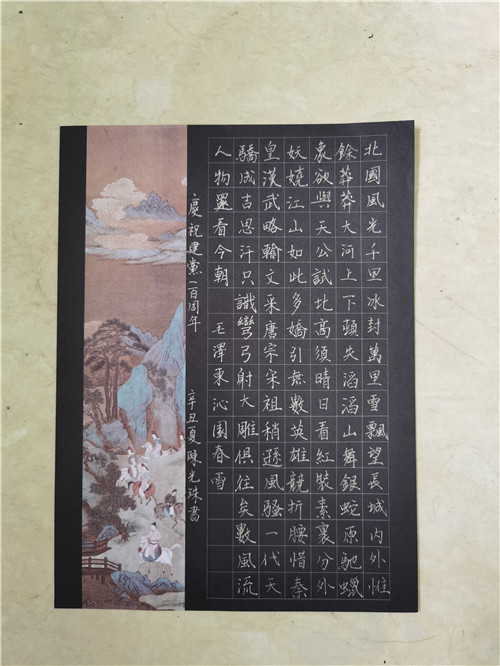 北國風光千里冰封萬里雪飄望長城内外惟
餘莽莽大河上下頓失滔滔山舞銀蛇原馳蠟
象欲與天公試比高須晴日看紅裝素裹分外
妖嬈江山如此多嬌引無數英雄競折腰惜秦
皇漢武略輸文采唐宗宋祖稍遜風騷一代天
驕成吉思汗只識彎弓射大雕俱往矣數風流
人物還看今朝 毛澤東沁園春雪
慶祝建黨一百周年 辛丑夏陳光珠書